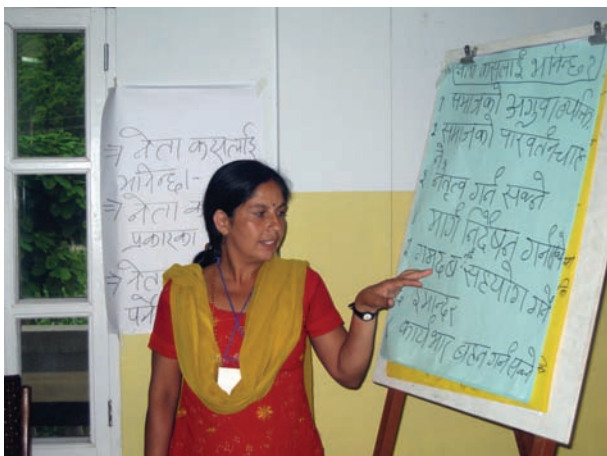 ⇒ नेता कसलाई
भनिन्छ।-
⇒ नेता
प्रकारका
⇒ नेता
नेता कसलाई भनिन्छ?
१ समाजको अगुवा व्यक्ति
२ समाजको परिवर्तन
नेतृत्व गर्न सक्ने
मार्ग निर्देशन गर्न
सहयोग गर्ने
इमान्दर
कार्यभार बहन गर्न सक्ने